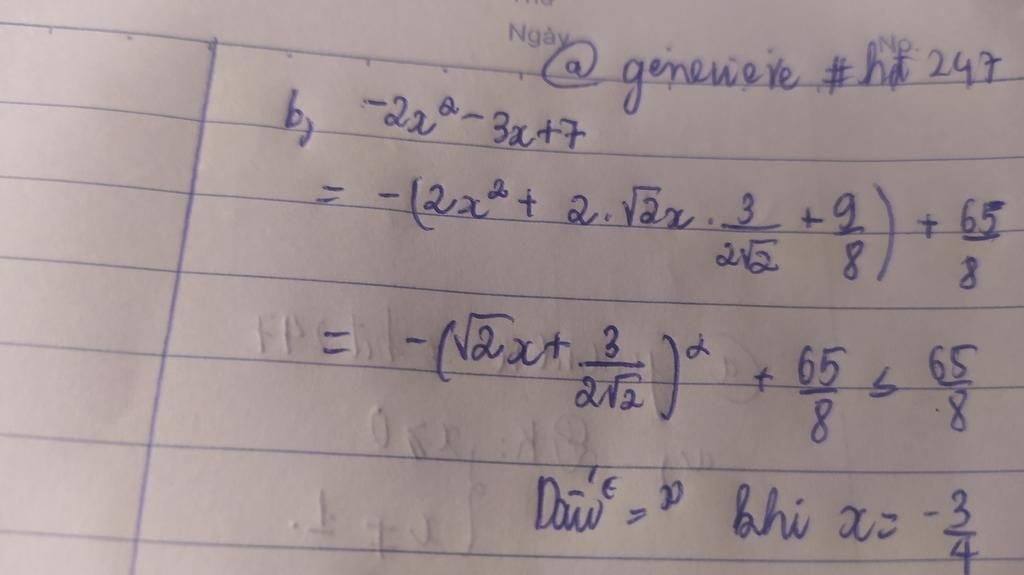 Ngày
No.
@ génevieve #hđ 247
b, -2x² - 3x + 7
= -(2x² + 2.√2x.3/2√2 + 9/8) + 65/8
= -(√2x + 3/2√2)² + 65/8 ≤ 65/8
Dấu "=" khi x = -3/4